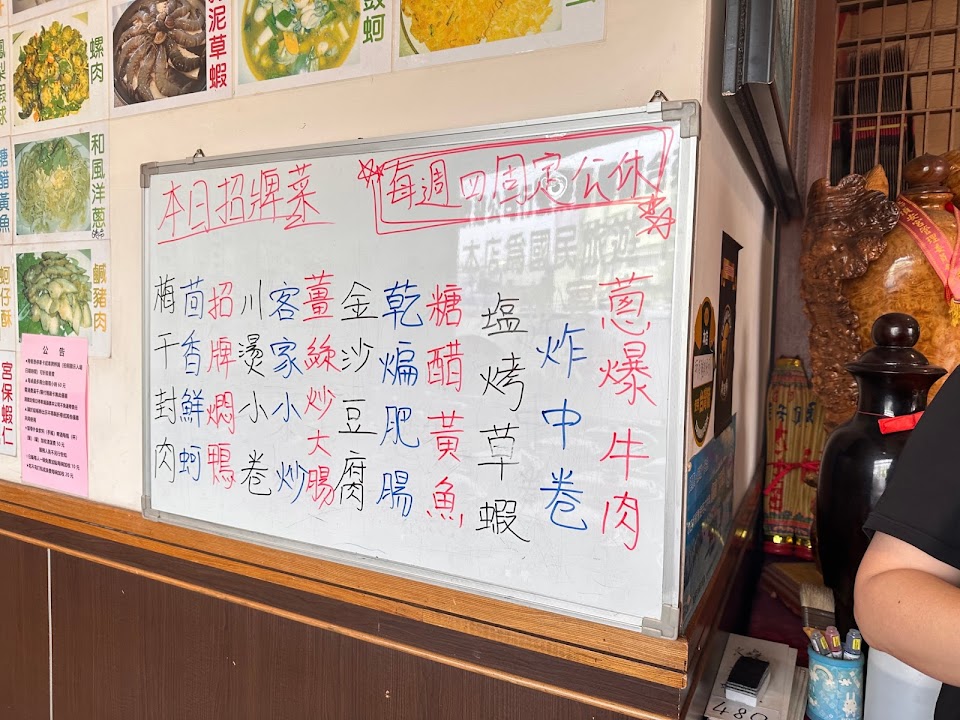 本日招牌菜
每週四固定公休
蔥爆牛肉
炸中卷
塩烤草蝦
糖醋黃魚
乾煸肥腸
金沙豆腐
薑絲炒大腸
客家小炒
川燙小卷
招牌燜鴨
茴香鮮蚵
梅干封肉
本店為國民旅遊
泥草蝦
蚵
螺肉
鳳梨蝦球
和風洋蔥
糖醋黃魚
鹹豬肉
蚵仔酥
宮保蝦仁
公告